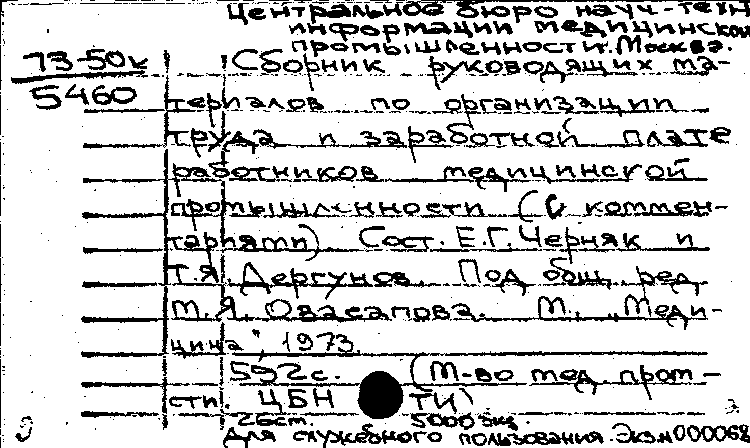 Центральное бюро науч.-техн
информации медицинской
промышленности. Москва.
73-50к
Сборник руководящих ма-
5460
териалов по организации
труда и заработной плате
работников медицинской
промышленности (с коммен-
тариями). Сост. Е.Г. Черняк и
Т.Я. Дергунов. Под общ. ред.
М.Я. Овасапова. М., „Меди-
цина", 1973.
592 с. (М-во мед. пром-
сти. ЦБН ТИ)
26см. 5000 экз.
Для служебного пользования. Экз.№000068